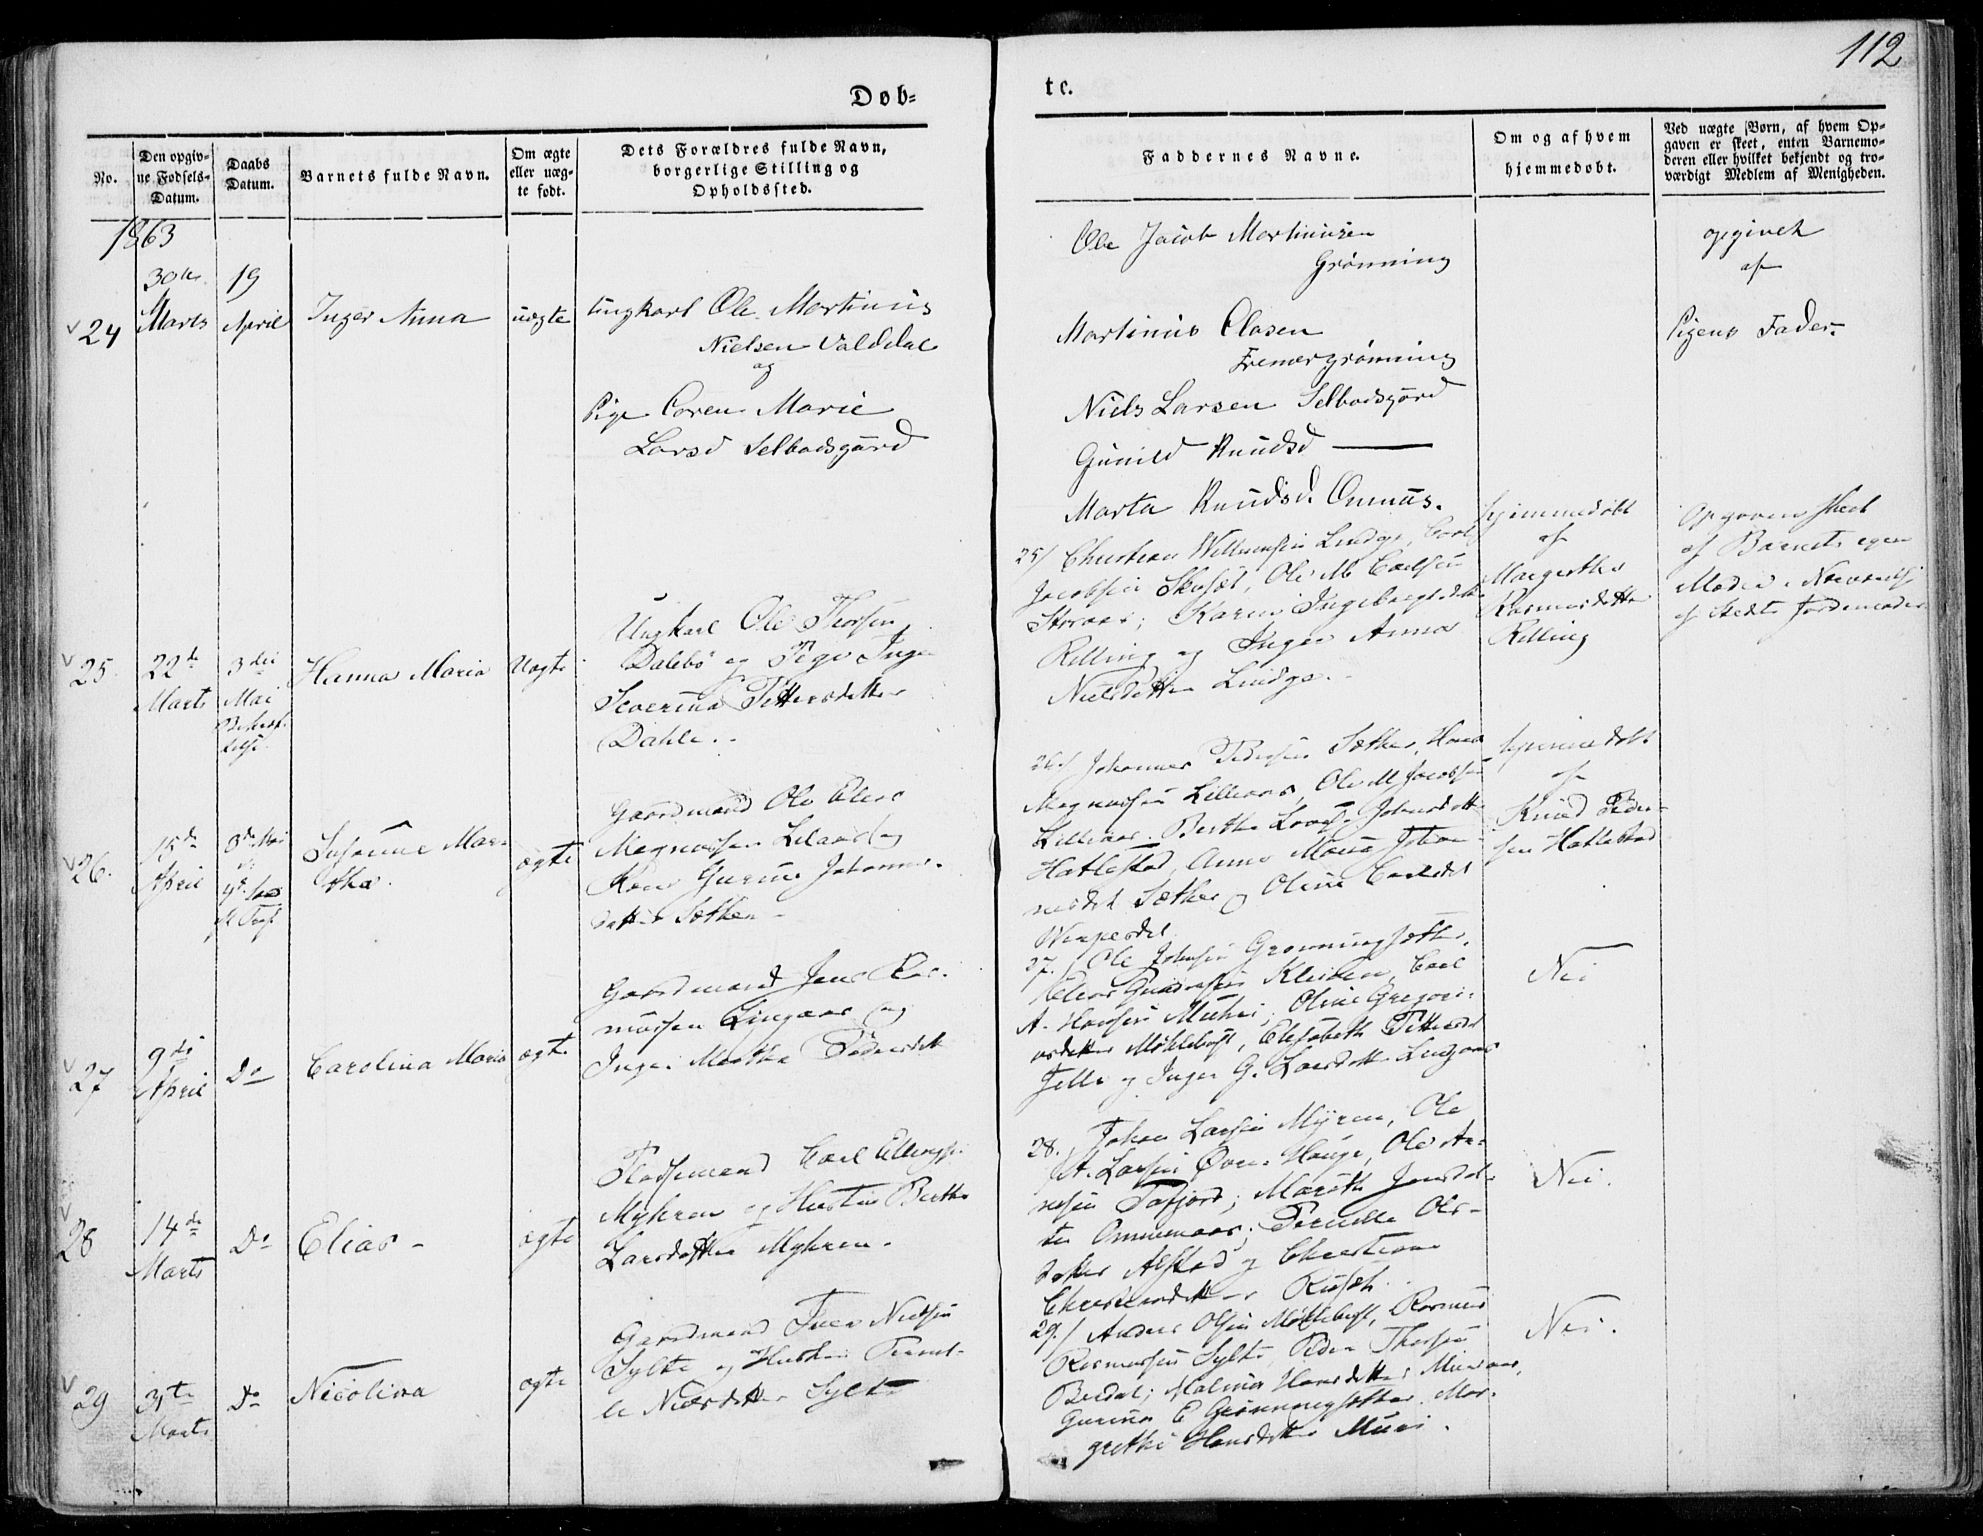 112
Døb-
te.
No.
Den opgiv-
ne Fødsels-
Datum.
Daabs
Datum.
Barnets fulde Navn.
Om ægte
eller uæg-
te født.
Dets Forældres fulde Navn,
borgerlige Stilling og
Opholdssted.
Faddernes Navne.
Om og af hvem
hjemmedøbt.
Ved uægte Børn, af hvem Op-
gaven er skeet, enten Barnemo-
deren eller hvilket bekjendt og tro-
værdigt Medlem af Menigheden.
1863
24
30te
Marts
19
April
Inger Anna
uægte
Ungkarl Ole Martinus
Nielsen Valddal
og
Pige Coren Marie
Larsd Selbodsgård
Ole Jacob Martinusen
Grønning
Martinus Olasen
Fremergrønning
Niels Larsen Selbodsgård
Gunild Knudsd
Marta Knudsd. Onmus.
opgivet
af
Pigens Fader
25.
22de
Marts
3die
Mai
Hanna Maria
Uægte
Ungkarl Ole Thorsen
Dalebø og Pige Inge
Severina Pettersdatter
Dahle.
25/ Christian Lindge, Carl
Jacobsen Ole M. Carlsen
Storaas; Karen Ingeborg
Relling og Inger Anna
Nielsdatter Lindge.
hjemmedøbt
af
Margrethe
Rasmusdatter
Relling
Opgaven skeet
af Barnets egen
Moder i Nærværelse
af Stedets Jordemoder
26.
15de
April
3de Mai
Susanne Mar-
tha.
ægte
Gaardmand Ole Elias
Magnussen Lilaas og
Kone Gurine Johannes-
datter Sæther
26/ Johannes Pedersen Sæther, Hans
Magnussen Lilleaas, Ole M Jacobsen
Lilleaas. Berthe Lovise Johnsdatt
Hatlestad, Anne Maria Johan-
nesdt Sæther og Oline Carlsdt
hjemmedøbt
af
Knud Peder-
sen Hatlestad
27
9de
April
Do
Carolina Maria
ægte
Gaardmand Jens Ras-
mussen Lingaas og
Inger Martha Pedersdatt
27./ Ole Johnsen Grønningsæther,
Elias Gundersen Carl
A. Hansen Muhri; Oline Gregori-
usdatter Møhlebust, Elisabeth Pettersdt
Jelle og Inger G. Larsdatt Lingaas
Nei
28
14de
Marts
Do
Elias
ægte
Pladsemand Carl Ellings
Myhren og Hustru Berthe
Larsdatter Myhren.
28. Johan Larsen Myren, Ole
A. Larsen Øvre Hauge, Ole Ar-
nesen Tafjord; Marith Jensdat-
ter Ommenaas; Pernelle Ols-
datter Alstad og Christiane
Christiansdatter
Nei.
29
31te
Marts
Do
Nicolina
ægte
Gaardmand Iver Nielsen
Sylte og Hustru Pernil-
le Nielsdatter Sylte
29/ Anders Olsen Møllebust, Rasmus
Rasmussen Sylte, Peder Thorsen
Berdal; Malene Hansdatter
Gurina E Grønningsæther, Mar-
grethe Hansdatter Muri.
Nei.